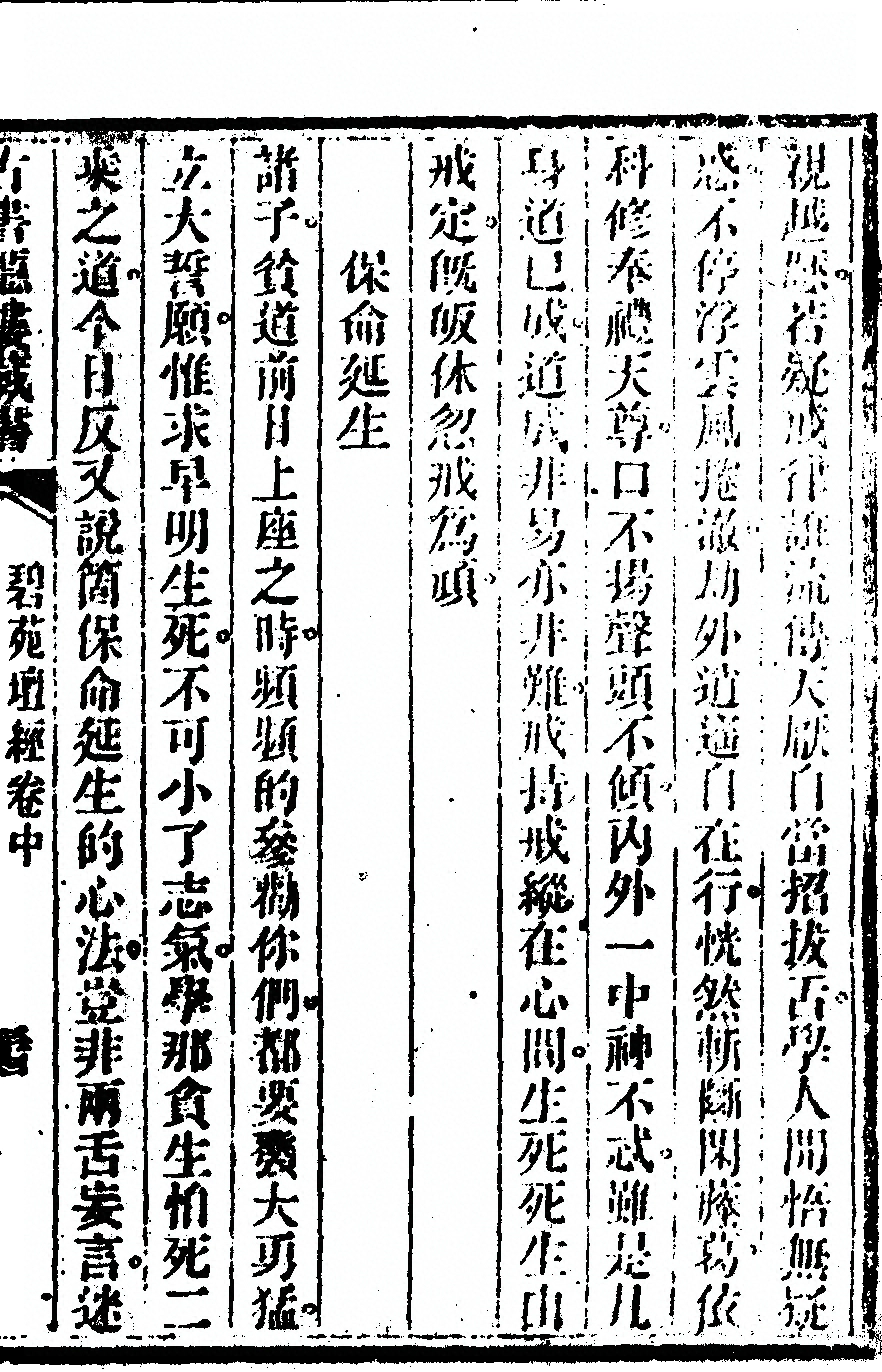 視越躲若疑戒律誰流傳天厭自當招拔舌學人開悟無疑
惑不停浮雲風捲澈劫外逍遙自在行恍然斬斷閑藤葛依
科修奉禮天尊口不揚聲頭不傾內外一中神不忒雖是凡
身道已成道成非易亦非難戒持戒縱在心間生死死生由
戒定旣皈休忽戒爲頭
保命延生
諸子貧道前日上座之時頻頻的參勸你們都要發大勇猛
立大誓願惟求早明生死不可小了志氣學那貪生怕死二
乘之道今日反又說箇保命延生的心法豈非兩舌妄言迷
古書隱樓藏書
碧苑壇經卷中